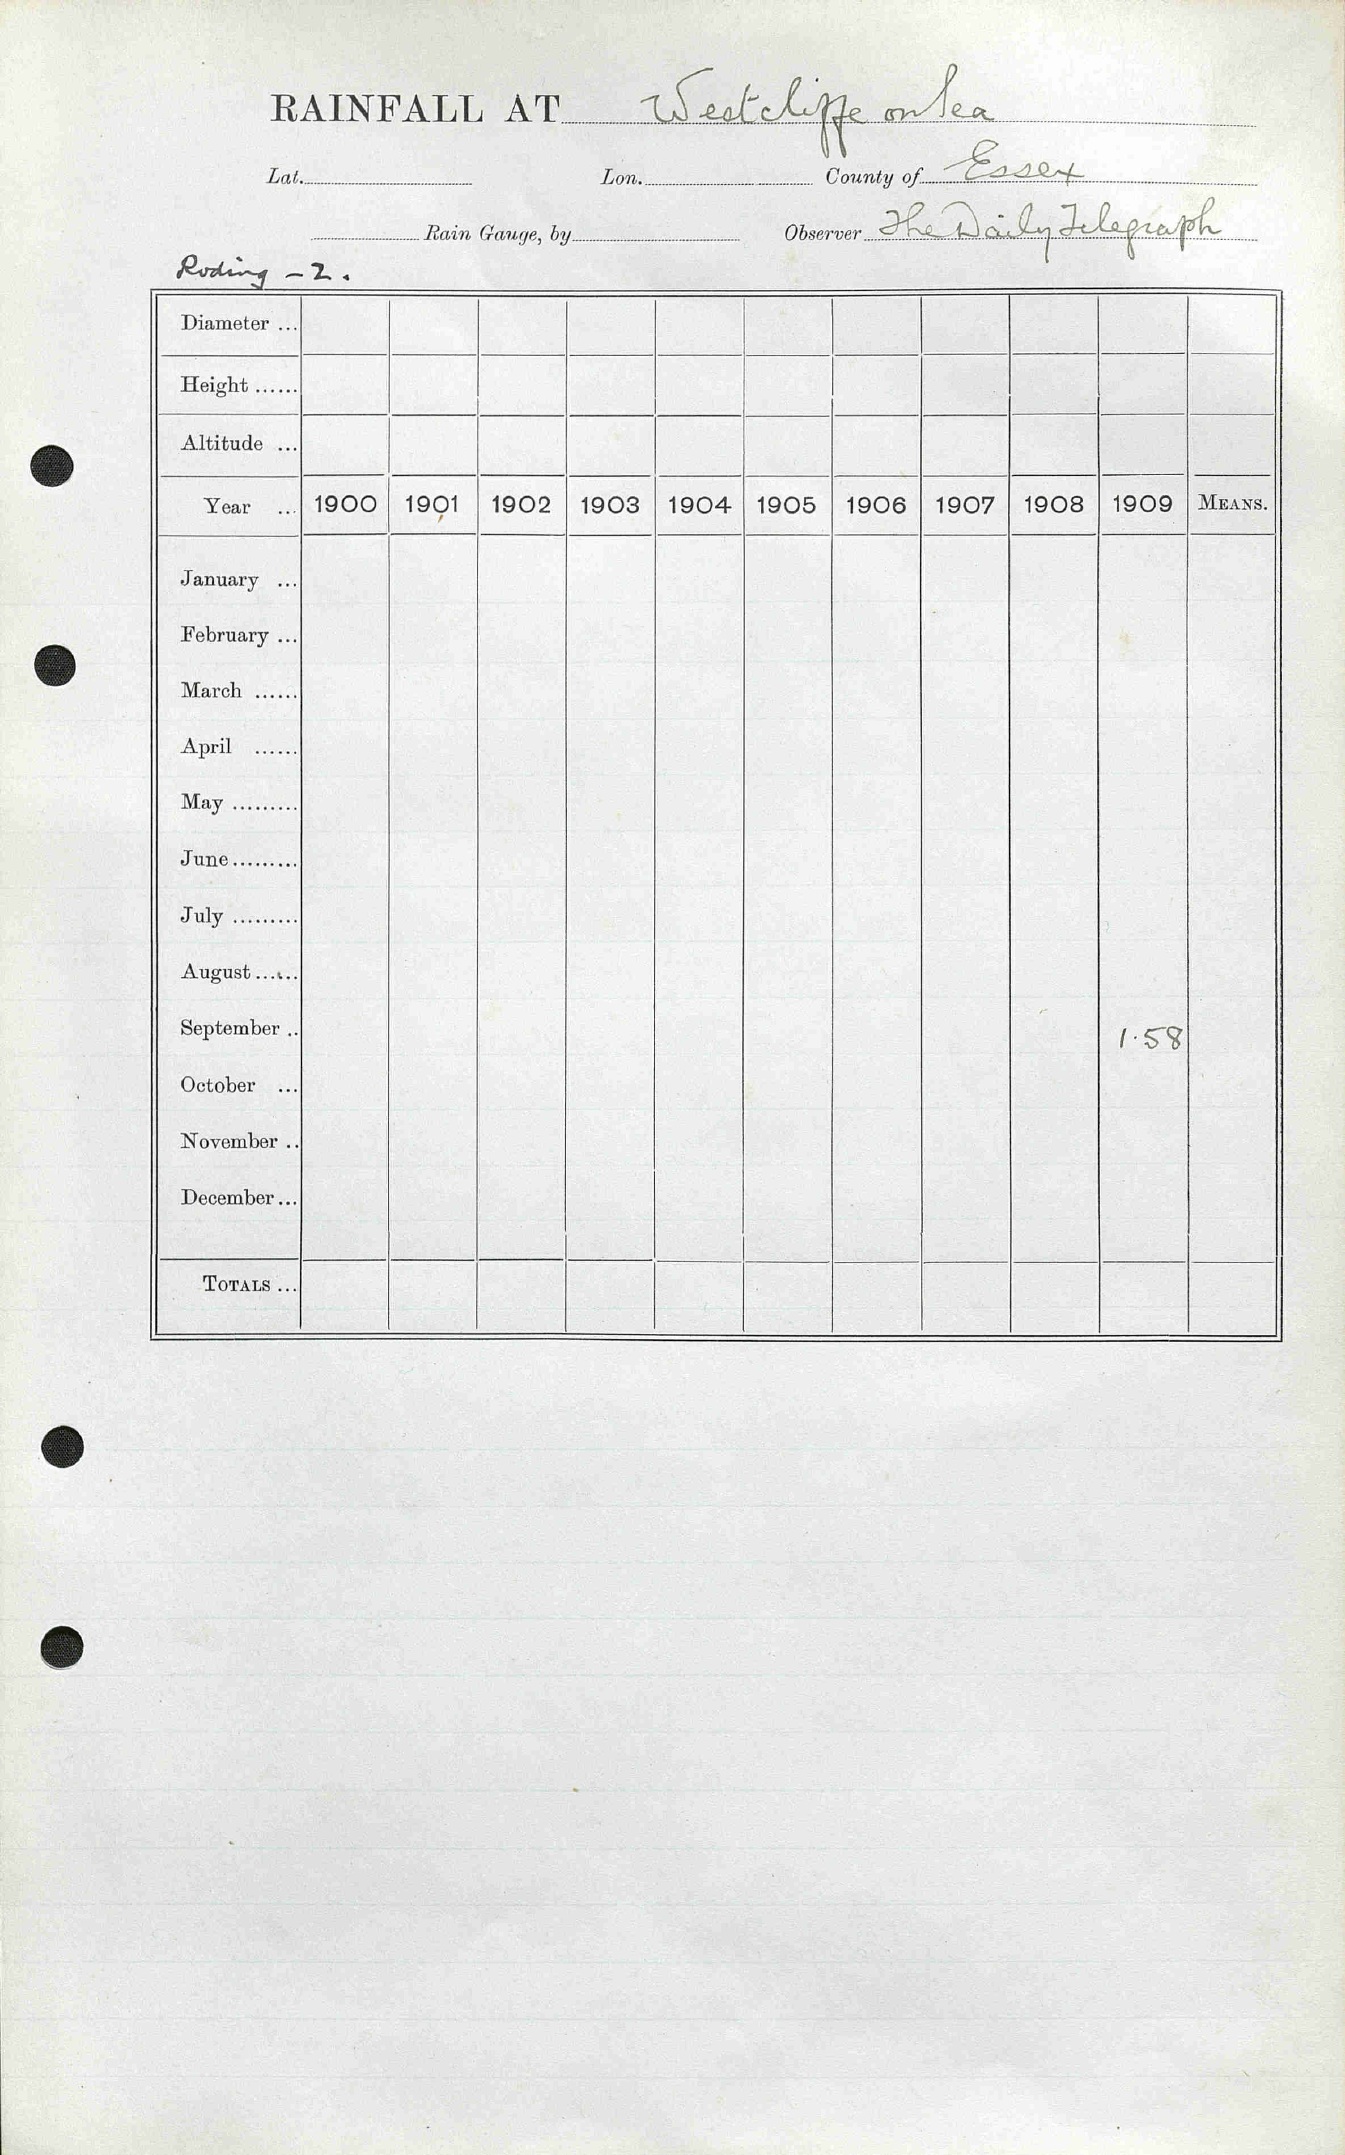 RAINFALL AT Westcliffe on Sea
Lat. Lon. County of Essex
Rain Gauge, by Observer The Daily Telegraph
Roding - 2.
Diameter ...
Height ......
Altitude ...
Year ... 1900 1901 1902 1903 1904 1905 1906 1907 1908 1909 MEANS.
January ...
February ...
March ......
April ......
May .........
June .........
July .........
August ......
September .. 1.58
October ...
November ..
December ...
TOTALS ...